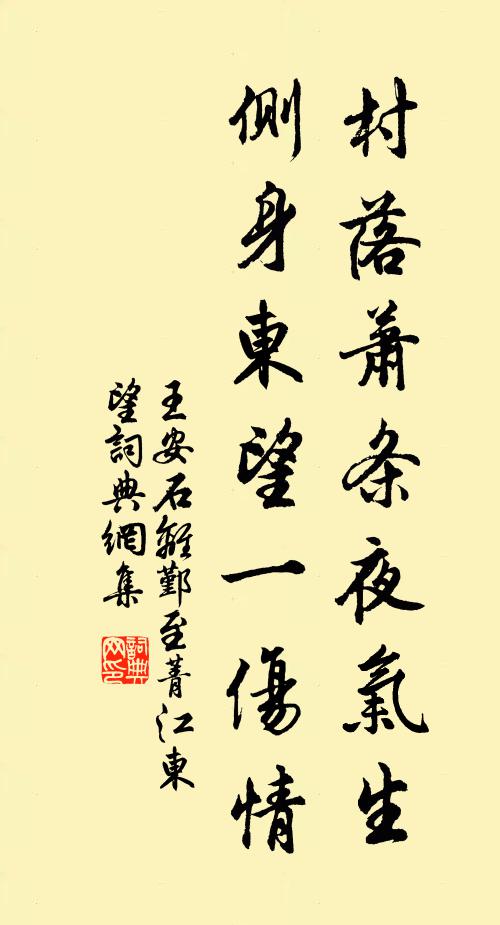 村落蕭条夜氣生
側身東望一傷情
王安石離鄞至菁江東
望詞典網集
詞典
网印